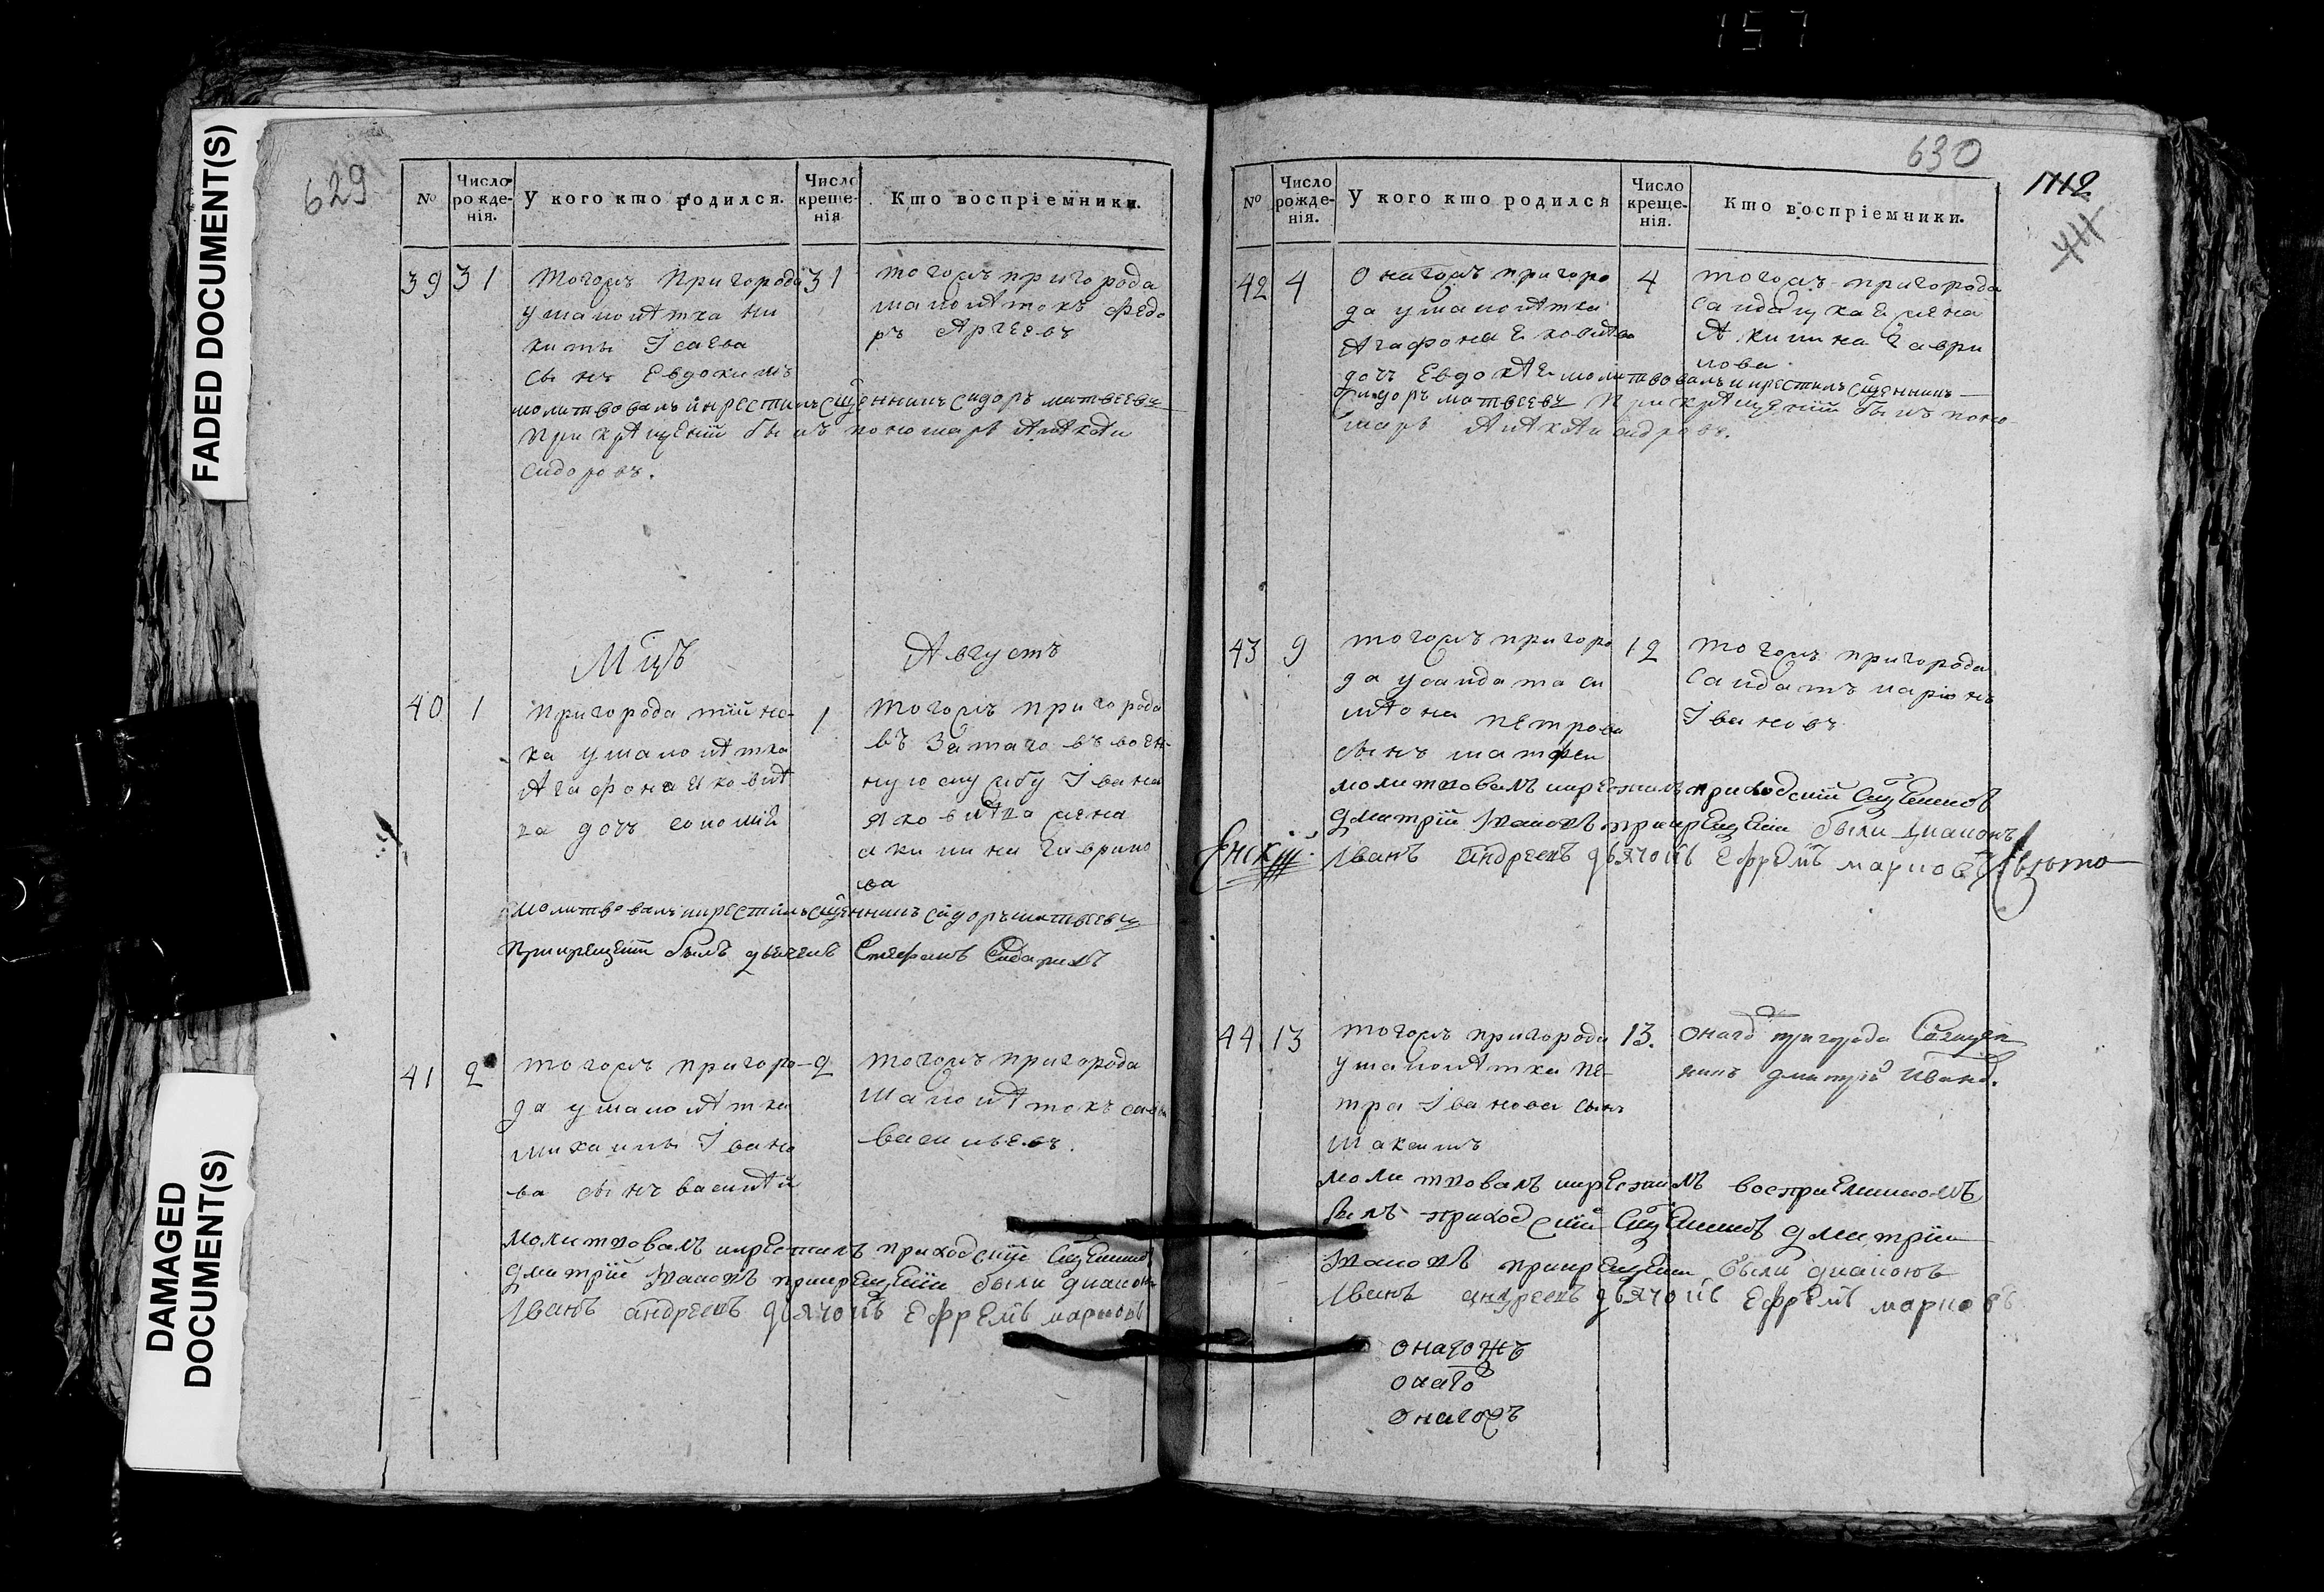 157
FADED DOCUMENT(S)
DAMAGED
DOCUMENT(S)
629
№
Число рожденія.
У кого кто родился.
Число крещенія
Кто воспріемники.
39
31
тогожъ Пригорода
у малолѣтка Ни
киты Ісаева
сынъ Евдокимъ
31
тогожъ пригорода
малолѣтокъ Федо
ръ
молитвовалъ и крестилъ сщенникъ Сидоръ Матвеевъ
при крѣщеніи былъ пономарь
Сидоровъ.
Мцъ
Августъ
40
1
Пригорода
ка у малолѣтка
Агафона Яковлѣ
ва дочь
1
тогожъ пригорода
въ
ную службу Івана
Яковлѣва жена
Акилина Гаврило
ва
молитвовалъ и крестилъ сщенникъ Сидоръ Матвеевъ
при крещеніи былъ дьячекъ Стефанъ
41
2
тогожъ пригоро-
да у малолѣтка
Михаилы Івано
ва сынъ Василѣй
2
тогожъ пригорода
малолѣтокъ
Васильевъ.
молитвовалъ и крестилъ приходскій сщенникъ
Дмитрій Івановъ при крещеніи были диаконъ
Іванъ Андреевъ дьячокъ Ефремъ Марковъ
630
1712
411
№
Число рожденія.
У кого кто родился
Число крещенія.
Кто воспріемники.
42
4
Онагожъ пригоро
да у малолѣтка
Агафона Яковлѣва
дочь Евдокѣя
4
тогожъ пригорода
салдацкая жена
Акилина Гаври
лова.
молитвовалъ и крестилъ сщенникъ
Сидоръ Матвеевъ При крѣщеніи былъ поно
марь
43
9
тогожъ пригоро
да у салдата Си
мѣона Петрова
сынъ Матфеи
12
тогожъ пригорода
салдатъ Ларіонъ
Івановъ
молитвовалъ и крестилъ приходскій сщенникъ
Дмитрій Івановъ при крещеніи были диаконъ
Іванъ Андреевъ дьячокъ Ефремъ Марковъ
44
13
тогожъ пригорода
у малолѣтка Пе-
тра Іванова сынъ
Максимъ
13.
онаго пригорода Священ
никъ Дмитрій Иванов.
молитвовалъ и крестилъ воспріемникомъ
былъ приходскій сщенникъ Дмитрій
Івановъ при крещеніи были диаконъ
Іванъ Андреевъ дьячокъ Ефремъ Марковъ
онагожъ
онаго
онагожъ